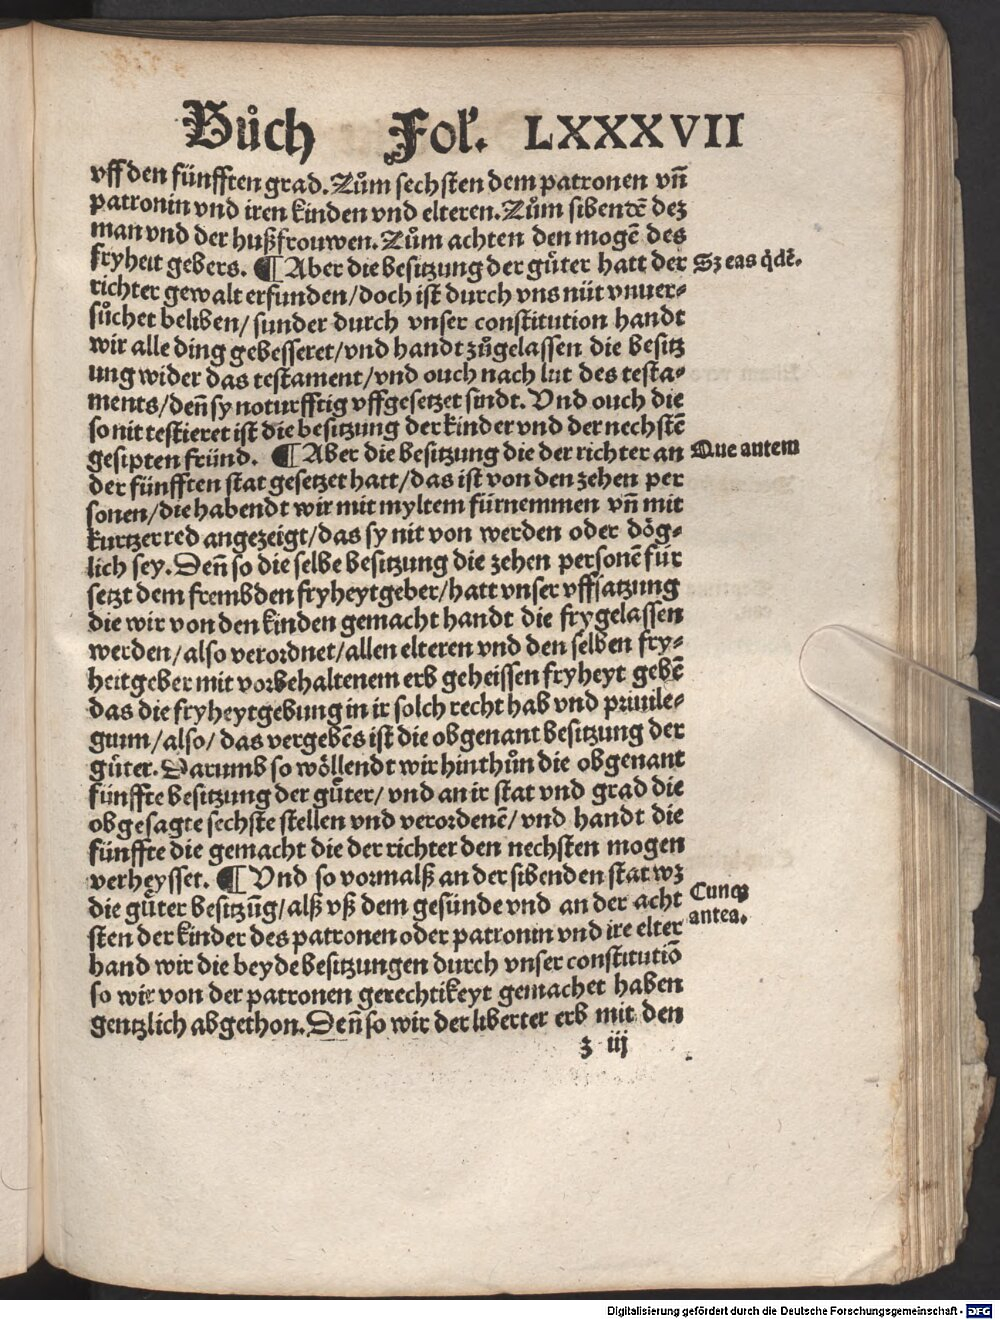 Bůch Fol'. LXXXVII
vff den fünfften grad. Zům sechsten dem patronen vn̄
patronin vnd iren kinden vnd elteren. Zům sibentē dez
man vnd der hußfrouwen. Zům achten den mogē des
fryheit gebers. ¶ Aber die besitzung der gůter hatt der
Sz eas q̇dē.
richter gewalt erfunden/doch ist durch vns nüt vnuer-
sůchet beliben/ sunder durch vnser constitution handt
wir alle ding gebesseret/vnd handt zůgelassen die besitz
ung wider das testament/vnd ouch nach lut des testa-
ments/deñ sy noturfftig vffgesetzet sindt. Vnd ouch die
so nit testieret ist die besitzung der kinder vnd der nechstē
gesipten fründ. ¶ Aber die besitzung die der richter an
Que antem
der fünfften stat gesetzet hatt/das ist von den zehen per
sonen/die habendt wir mit myltem fürnemmen vn̄ mit
kurtzer red angezeigt/das sy nit von werden oder dög-
lich sey. Deñ so die selbe besitzung die zehen personē für
setzt dem frembden fryheytgeber/hatt vnser vffsatzung
die wir von den kinden gemacht handt die frygelassen
werden/also verordnet/allen elteren vnd den selben fry-
heitgeber mit vorbehaltenem erb geheissen fryheyt gebē
das die fryheytgebung in ir solch recht hab vnd priuile-
gium/also/ das vergebēs ist die obgenant besitzung der
gůter. Darumb so wöllendt wir hinthůn die obgenant
fünffte besitzung der gůter/ vnd an ir stat vnd grad die
obgesagte sechste stellen vnd verordenē/ vnd handt die
fünffte die gemacht die der richter den nechsten mogen
verheysset. ¶ Vnd so vormalß an der sibenden stat wz
die gůter besitzūg/alß vß dem gesünde vnd an der acht
Cunqz
antea.
sten der kinder des patronen oder patronin vnd ire elter
hand wir die beyde besitzungen durch vnser constitutiō
so wir von der patronen gerechtikeyt gemachet haben
gentzlich abgethon. Deñ so wir der liberter erb mit den
z iij
Digitalisierung gefördert durch die Deutsche Forschungsgemeinschaft - DFG